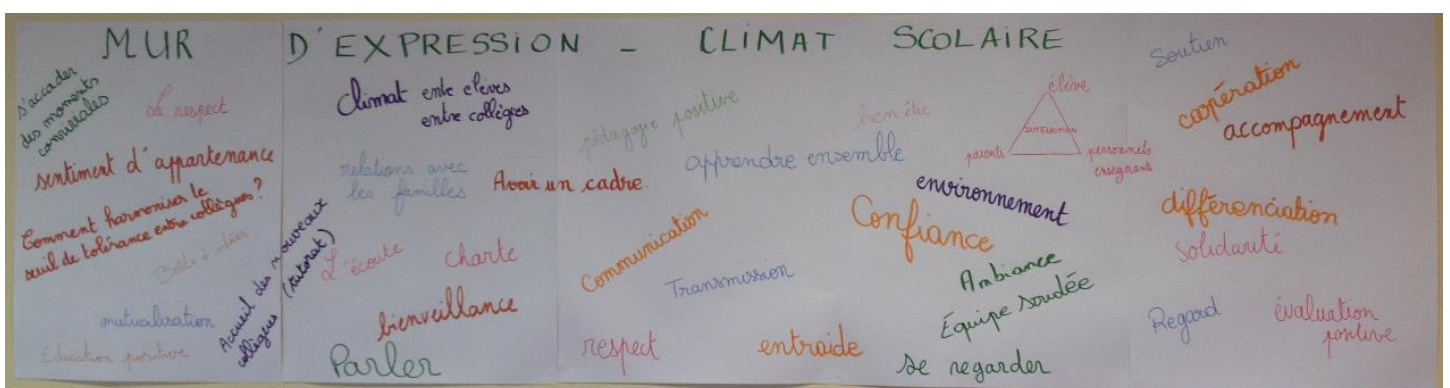 MUR D'EXPRESSION - CLIMAT SCOLAIRE
s'accader
des moments
conviviales
Le respect
sentiment d'appartenance
Comment harmoniser le
seuil de tolérance entre collègues?
Boîte à idées
mutualisation
Education positive
Accueil des nouveaux
collègues (tutorat)
Climat entre elèves
entre collègies
relations avec
les familles
Avoir un cadre.
L'écoute
charte
bienveillance
Parler
pédagogie positive
bien être
apprendre ensemble
Communication
Transmission
respect
entraide
Confiance
environnement
Ambiance
Équipe soudée
se regarder
élève
parents
personnels
enseignants
Soutien
coopération
accompagnement
différenciation
Solidarité
Regard
évaluation
positive